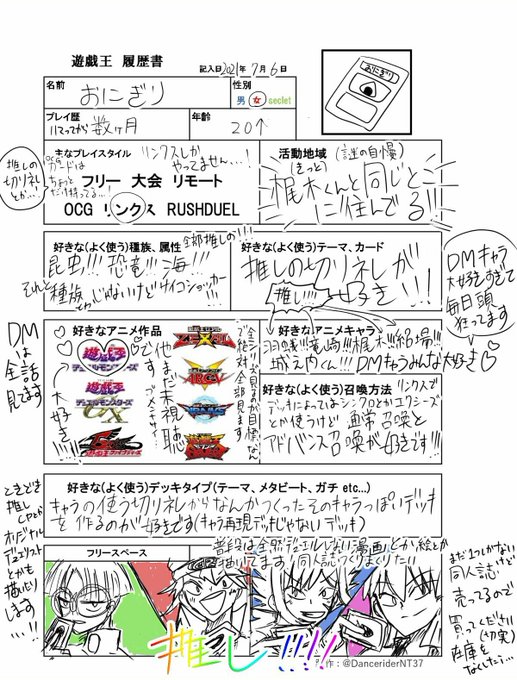 遊戯王 履歴書
記入日2021年 7月 6日
名前
おにぎり
性別
男 女 seclet
おにぎり
プレイ歴
ハマってから数ヶ月
年齢
20↑
主なプレイスタイル
リンクスしか
やってません…!
OCG
カードは
ちょっと
だけ持ってる…!
フリー 大会 リモート
OCG リンクス RUSHDUEL
推しの
切りネレ
とか…!
活動地域
(謎の自慢)
(きっと)
梶木くんと同じとこ
に住んでる!!
好きな(よく使う)種族、属性
全部推しの!!!
昆虫!!!恐竜!!!海!!!
それと
種族
とかじゃないけどサイコショッカー
!!!
好きな(よく使う)テーマ、カード
推しの切りネレが
好き!!!
推し!!!
DMキャラ
大好きすぎて
毎日頭
狂ってます
好きなアニメ作品
遊☆戯☆王
デュエルモンスターズ
遊☆戯☆王
デュエルモンスターズ
GX
ZEXAL
ARC-V
VRAINS
大好き!!!
です…!
他まだ未視聴
DM
は
全話
見てます
好きなアニメキャラ
羽蛾!!!竜崎!!!梶木!!!絽場!!!
城之内くん!!!DMキャラみんな大好き♡
好きな(よく使う)召喚方法
リンクスで
デッキによってはシンクロとかエクシーズ
とか使うけど 通常召喚と
アドバンス召喚が好きです!!!
好きな(よく使う)デッキタイプ(テーマ、メタビート、ガチ etc...)
キャラの使う切りネレからなんかつくったそのキャラっぽいデッキ
を作るのが好きです(キャラ再現デッキじゃないデッキ)
フリースペース
普段は全然デュエルしない漫画とか絵とか
描いてます!同人誌つくりまくりたい!
ときどき
推し
CPとか
オリジナル
デュエリスト
とかも
描いたり
します
…!!
まだ1つしかない
同人誌けど
売ってるので
買ってください
(切実)
在庫を
なくしたい…
推し!!!!
制作:@DanceriderNT37